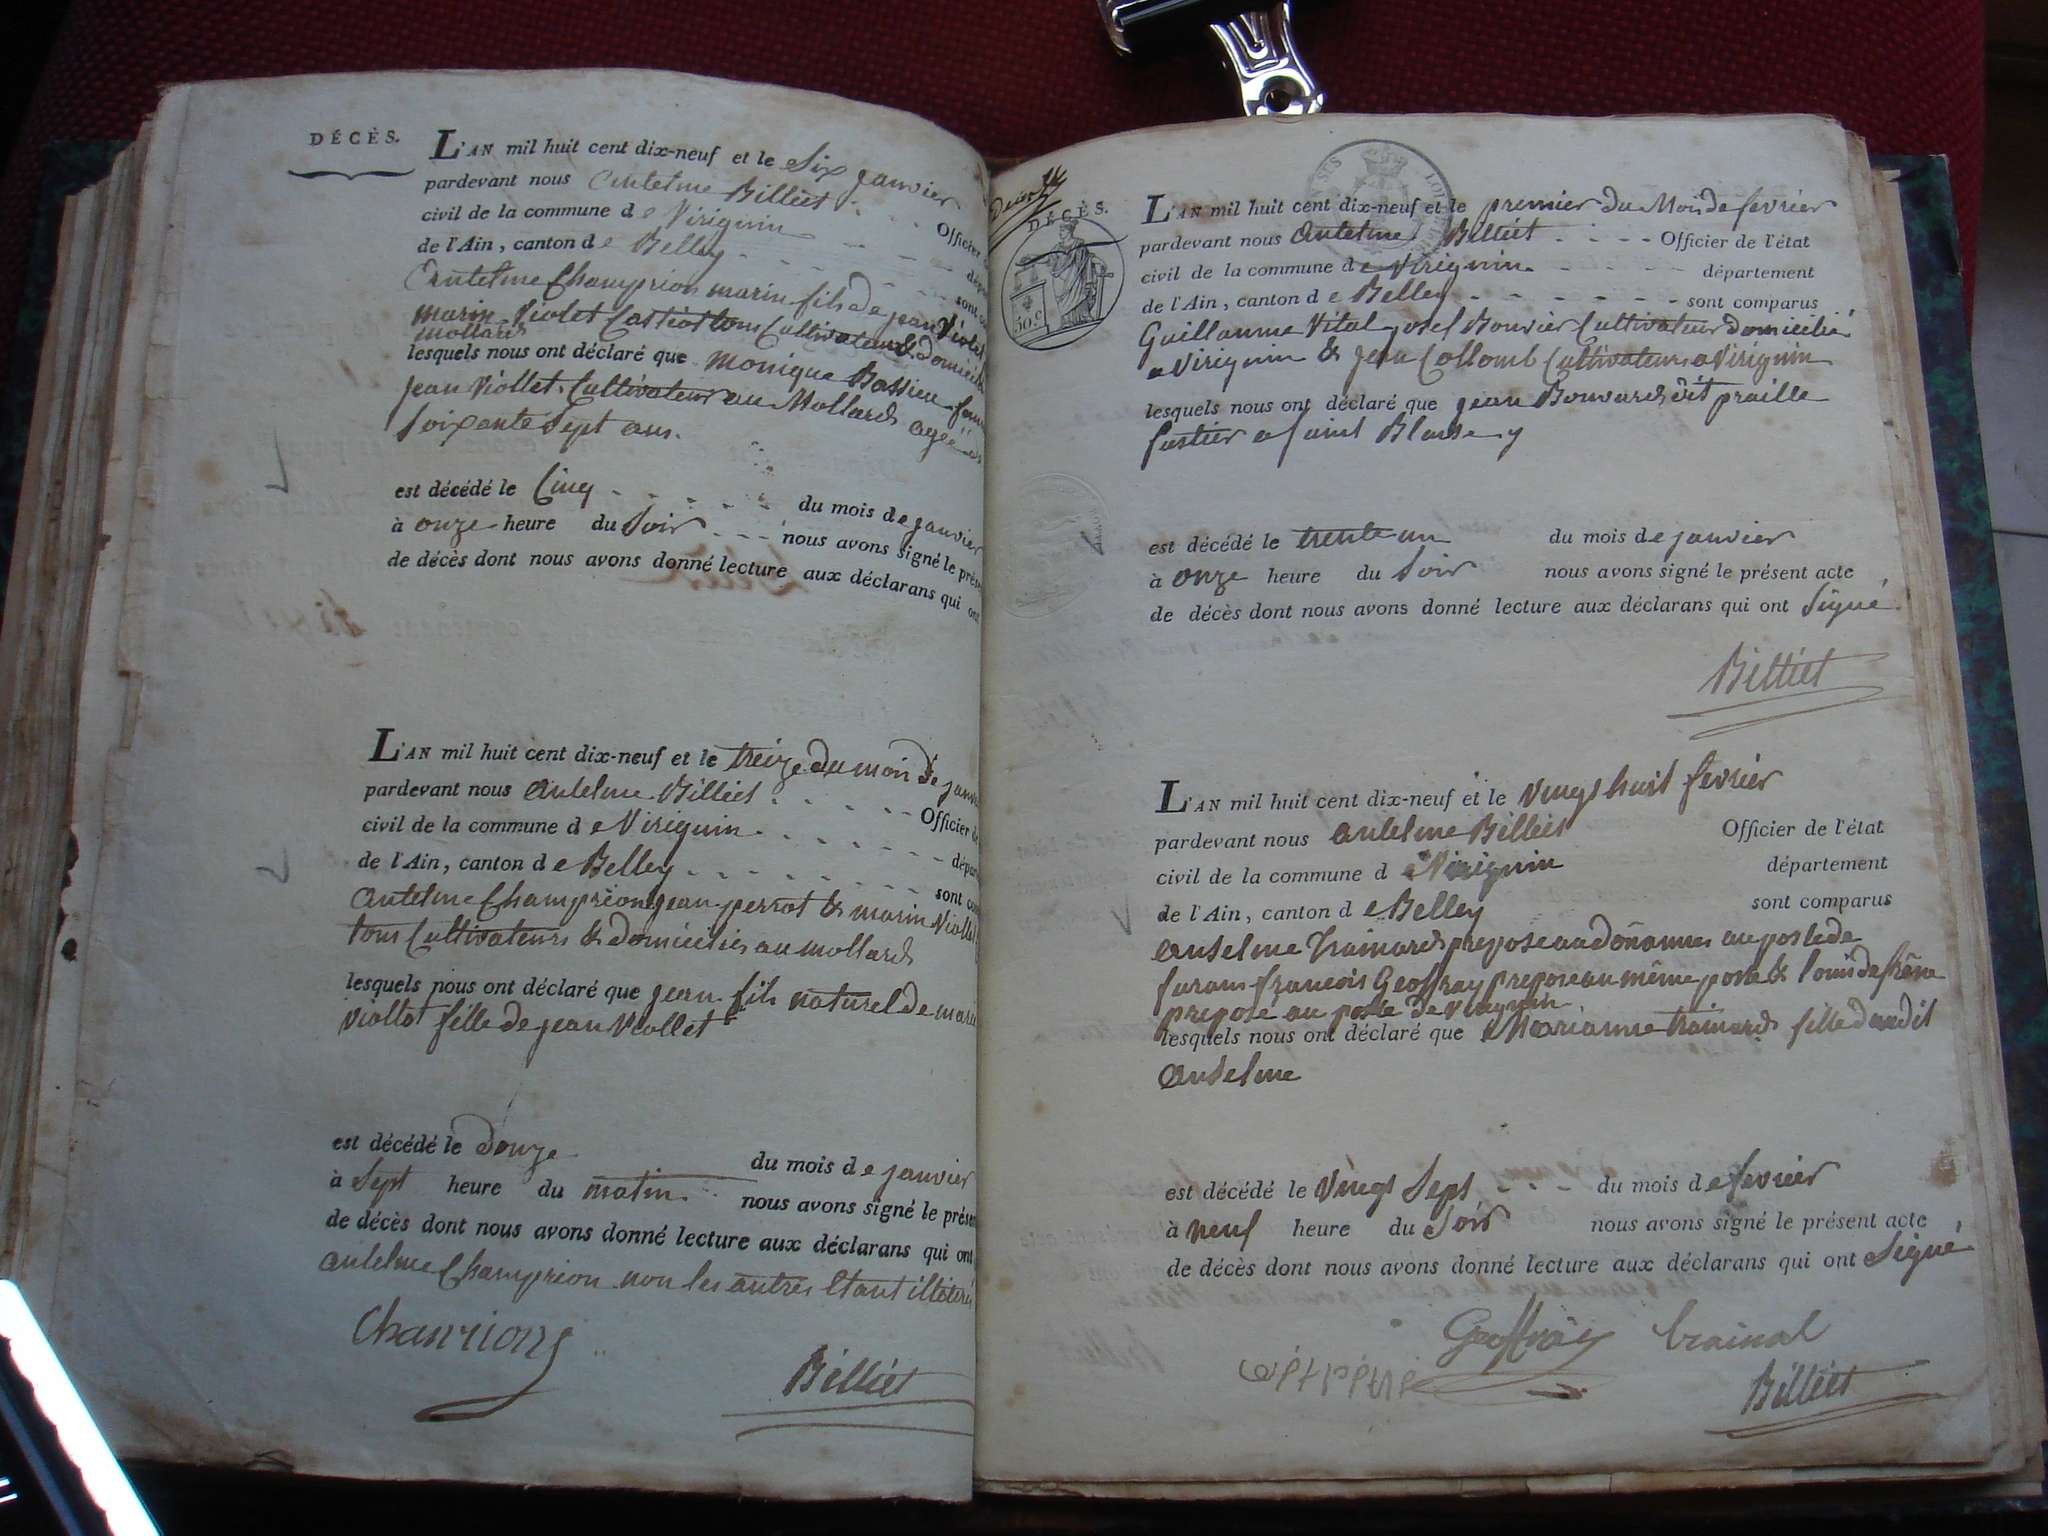 DÉCÈS.
L'AN mil huit cent dix-neuf et le Six janvier
pardevant nous Antelme Billiet Officier
civil de la commune de Virignin
de l'Ain, canton de Belley
Antelme Champion marin fils de jean Violet
marin Violet tous Cultivateurs & domicilié
mollard
lesquels nous ont déclaré que monique Bassieu
jean Viollet Cultivateur au Mollard agée
Soixante Sept ans.
est décédé le Cinq du mois de janvier
à onze heure du Soir nous avons signé le
de décès dont nous avons donné lecture aux déclarans qui
L'AN mil huit cent dix-neuf et le treize du mois de
pardevant nous antelme Billiet Officier
civil de la commune de Virignin
de l'Ain, canton de Belley sont
antelme Champion jean perrot & marin Viollet
tous Cultivateurs & domiciliés au mollard
lesquels nous ont déclaré que jean fils naturel de
viollot fille de jean Viollet
est décédé le douze du mois de janvier
à Sept heure du matin nous avons signé le
de décès dont nous avons donné lecture aux déclarans qui ont
antelme Champion non les autres étant
Billiet
DÉCÈS.
50.c
L'AN mil huit cent dix-neuf et le premier du Mois de fevrier
pardevant nous antelme Billiet Officier de l'état
civil de la commune de Virignin département
de l'Ain, canton de Belley sont comparus
Guillaume Vital josef Bouvier Cultivateur domicilié
a Virignin & jean Collomb Cultivateur a Virignin
lesquels nous ont déclaré que jean Bouvard dit praille
fustier a saint Blaise
est décédé le trente un du mois de janvier
à onze heure du Soir nous avons signé le présent acte
de décès dont nous avons donné lecture aux déclarans qui ont Signé
Billiet
L'AN mil huit cent dix-neuf et le Vingt huit fevrier
pardevant nous antelme Billiet Officier de l'état
civil de la commune de Virignin département
de l'Ain, canton de Belley sont comparus
anselme trainard preposé au douannes au poste de
furans françois Geoffray preposé au même poste & louis
preposé au poste de Virignin
lesquels nous ont déclaré que Marianne trainard fille dudit
anselme
est décédé le Vingt Sept du mois de fevrier
à neuf heure du Soir nous avons signé le présent acte
de décès dont nous avons donné lecture aux déclarans qui ont Signé
Geoffray trainal
Billiet